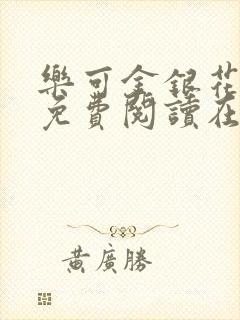 樂可金銀花
免費閱讀在
黃廣勝